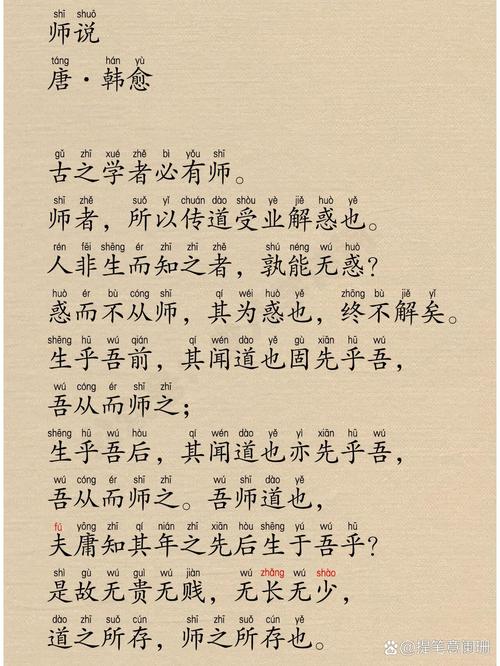 shī shuō
师说
táng hán yù
唐·韩愈
gǔ zhī xué zhě bì yǒu shī
古之学者必有师。
shī zhě suǒ yǐ chuán dào shòu yè jiě huò yě
师者，所以传道受业解惑也。
rén fēi shēng ér zhī zhī zhě shú néng wú huò
人非生而知之者，孰能无惑？
huò ér bù cóng shī qí wéi huò yě zhōng bù jiě yǐ
惑而不从师，其为惑也，终不解矣。
shēng hū wú qián qí wén dào yě gù xiān hū wú
生乎吾前，其闻道也固先乎吾，
wú cóng ér shī zhī
吾从而师之；
shēng hū wú hòu qí wén dào yě yì xiān hū wú
生乎吾后，其闻道也亦先乎吾，
wú cóng ér shī zhī wú shī dào yě
吾从而师之。吾师道也，
fú yōng zhī qí nián zhī xiān hòu shēng yú wú hū
夫庸知其年之先后生于吾乎？
shì gù wú guì wú jiàn wú zhǎng wú shào
是故无贵无贱，无长无少，
dào zhī suǒ cún shī zhī suǒ cún yě
道之所存，师之所存也。
@提笔意阑珊